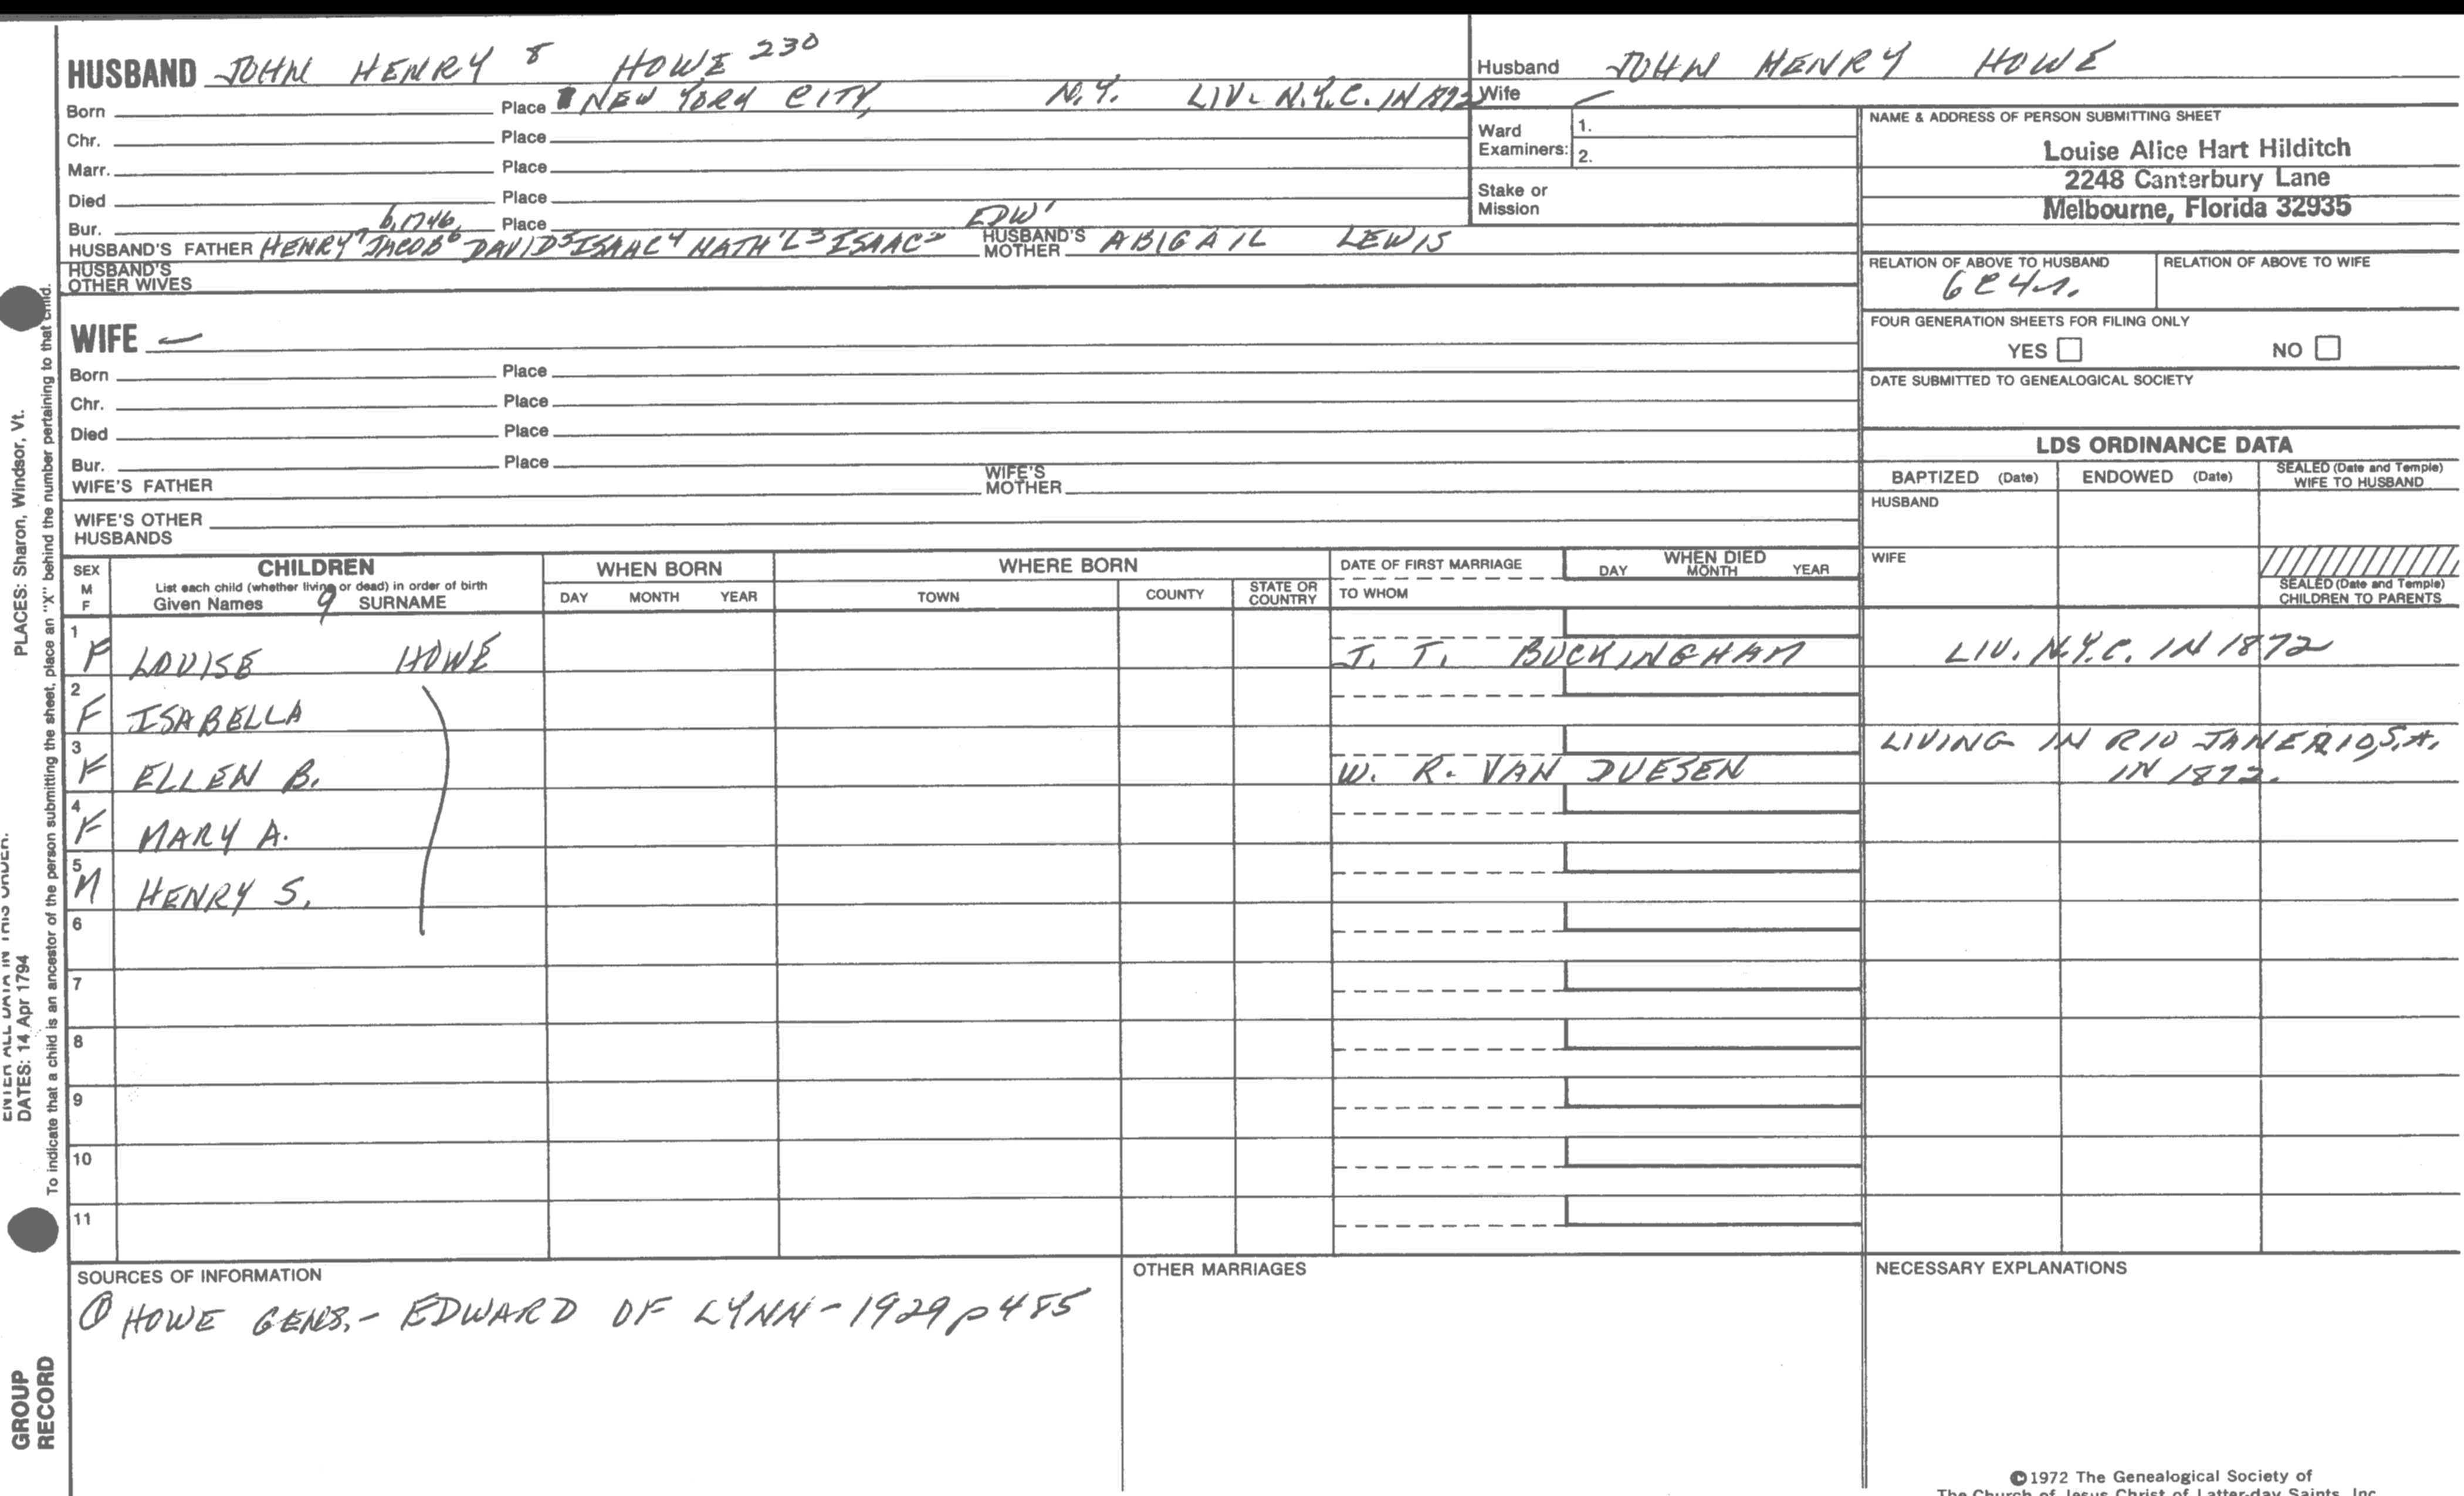 HUSBAND JOHN HENRY 8 HOWE 230
Born Place NEW YORK CITY, N.Y. LIV. N.Y.C. IN 1892
Chr. Place
Marr. Place
Died Place
Bur. Place
b. 1746 EDW'
HUSBAND'S FATHER HENRY7 JACOB6 DAVID5 ISAAC4 NATH'L3 ISAAC2 HUSBAND'S MOTHER ABIGAIL LEWIS
HUSBAND'S OTHER WIVES
Husband JOHN HENRY HOWE
Wife
Ward Examiners: 1.
2.
Stake or Mission
NAME & ADDRESS OF PERSON SUBMITTING SHEET
Louise Alice Hart Hilditch
2248 Canterbury Lane
Melbourne, Florida 32935
RELATION OF ABOVE TO HUSBAND RELATION OF ABOVE TO WIFE
6C4r.
FOUR GENERATION SHEETS FOR FILING ONLY
YES NO
DATE SUBMITTED TO GENEALOGICAL SOCIETY
WIFE —
Born Place
Chr. Place
Died Place
Bur. Place
WIFE'S FATHER WIFE'S MOTHER
WIFE'S OTHER HUSBANDS
LDS ORDINANCE DATA
BAPTIZED (Date) ENDOWED (Date) SEALED (Date and Temple) WIFE TO HUSBAND
HUSBAND
WIFE
SEALED (Date and Temple) CHILDREN TO PARENTS
SEX M F
CHILDREN
List each child (whether living or dead) in order of birth
Given Names 9 SURNAME
WHEN BORN
DAY MONTH YEAR
WHERE BORN
TOWN COUNTY STATE OR COUNTRY
DATE OF FIRST MARRIAGE
TO WHOM
WHEN DIED
DAY MONTH YEAR
1 F LOUISE HOWE J. T. BUCKINGHAM LIV. N.Y.C. IN 1872
2 F ISABELLA
3 F ELLEN B. W. R. VAN DUESEN LIVING IN RIO JANERIO, S.A.
IN 1872.
4 F MARY A.
5 M HENRY S.
6
7
8
9
10
11
SOURCES OF INFORMATION
① HOWE GENS.- EDWARD OF LYNN - 1929 p 485
OTHER MARRIAGES
NECESSARY EXPLANATIONS
©1972 The Genealogical Society of
The Church of Jesus Christ of Latter-day Saints, Inc.
PLACES: Sharon, Windsor, Vt.
To indicate that a child is an ancestor of the person submitting the sheet, place an "X" behind the number pertaining to that child.
ENTER ALL DATA IN THIS ORDER:
DATES: 14 Apr 1794
GROUP
RECORD